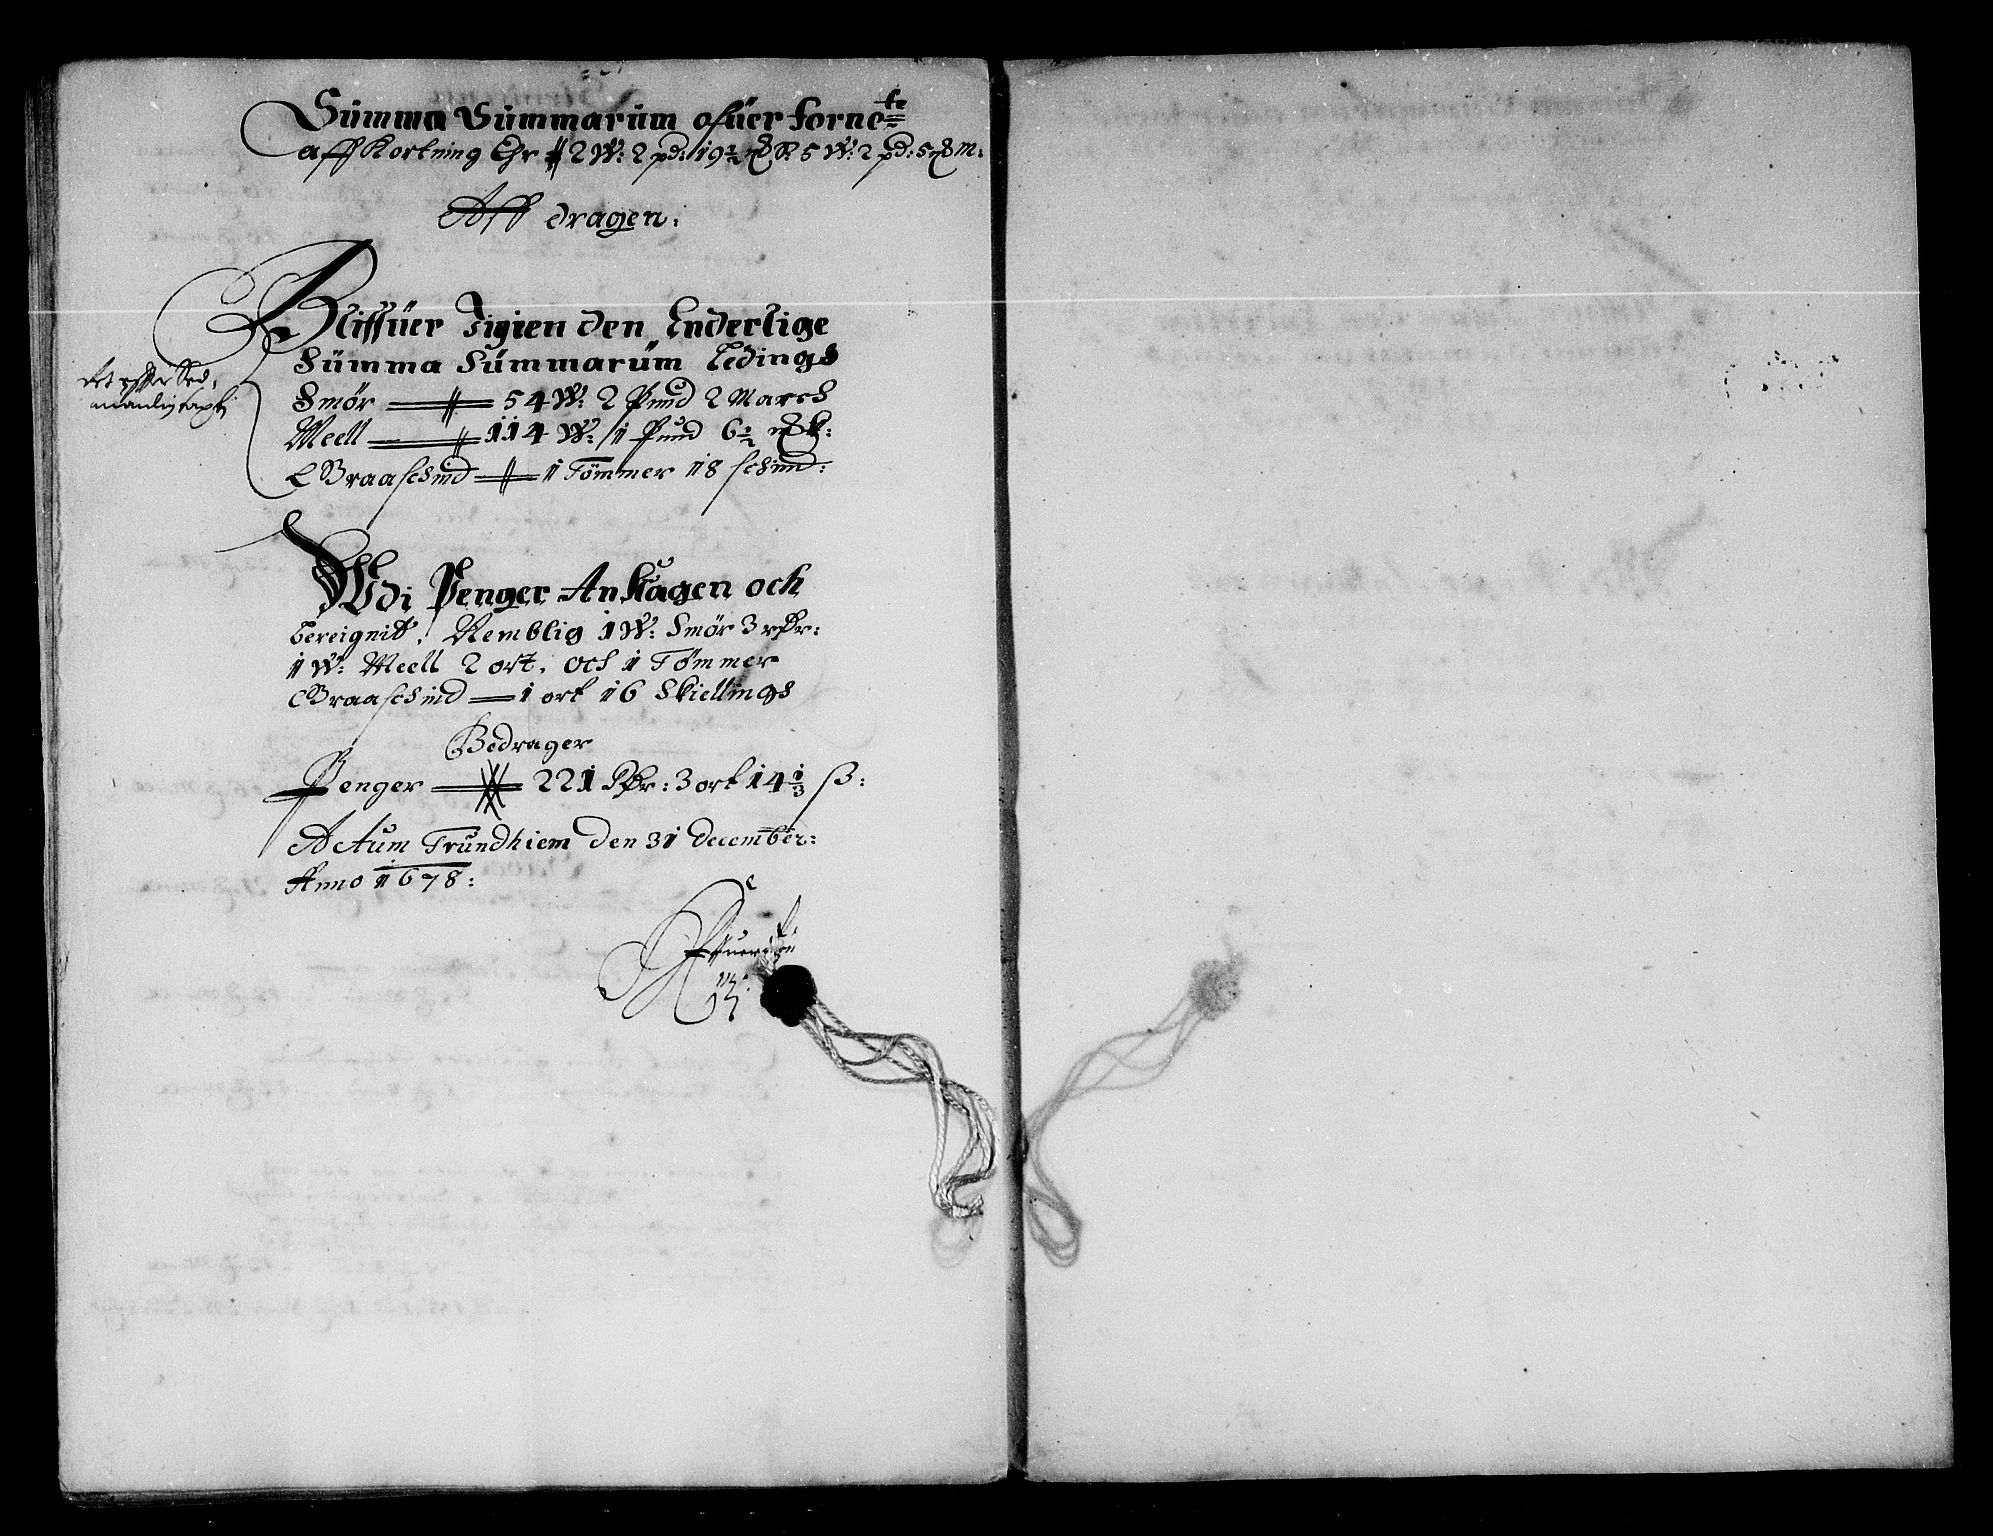 Summa Summarum ofüer forneᵗᵉ
aff Kortning Ehr 2 W: 2 pd: 19½ S. 5 W: 2 pd: 5 M:
Aff dragen.
Bliffüer Igien den Enderlige
Summa Summarum Ledings
Smör 54 W: 2 Pund 2 March
Meell 114 W: 1 Pund 6½
Graaschind 1 Tömmer 18 schind:
Wdi Penger Anslagen och
bereignit, Nemblig 1 W: Smör 3 rdr:
1 W: Meell 2 ort. och 1 Tömmer
Graaschind 1 ort 16 Skiellings
Bedrager
Penger 221 Rdr: 3 ort 14⅓ ß:
Actum Trundhiem den 31 December:
Anno 1678: